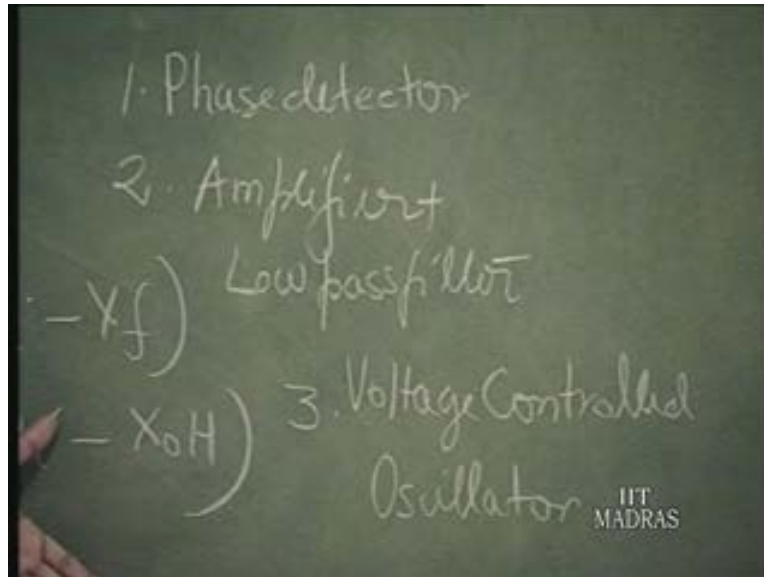 1. Phasedetector
2. Amplifier+
Lowpassfilter
- Xf)
- XoH)
3. Voltage Controlled
Oscillator
IIT
MADRAS